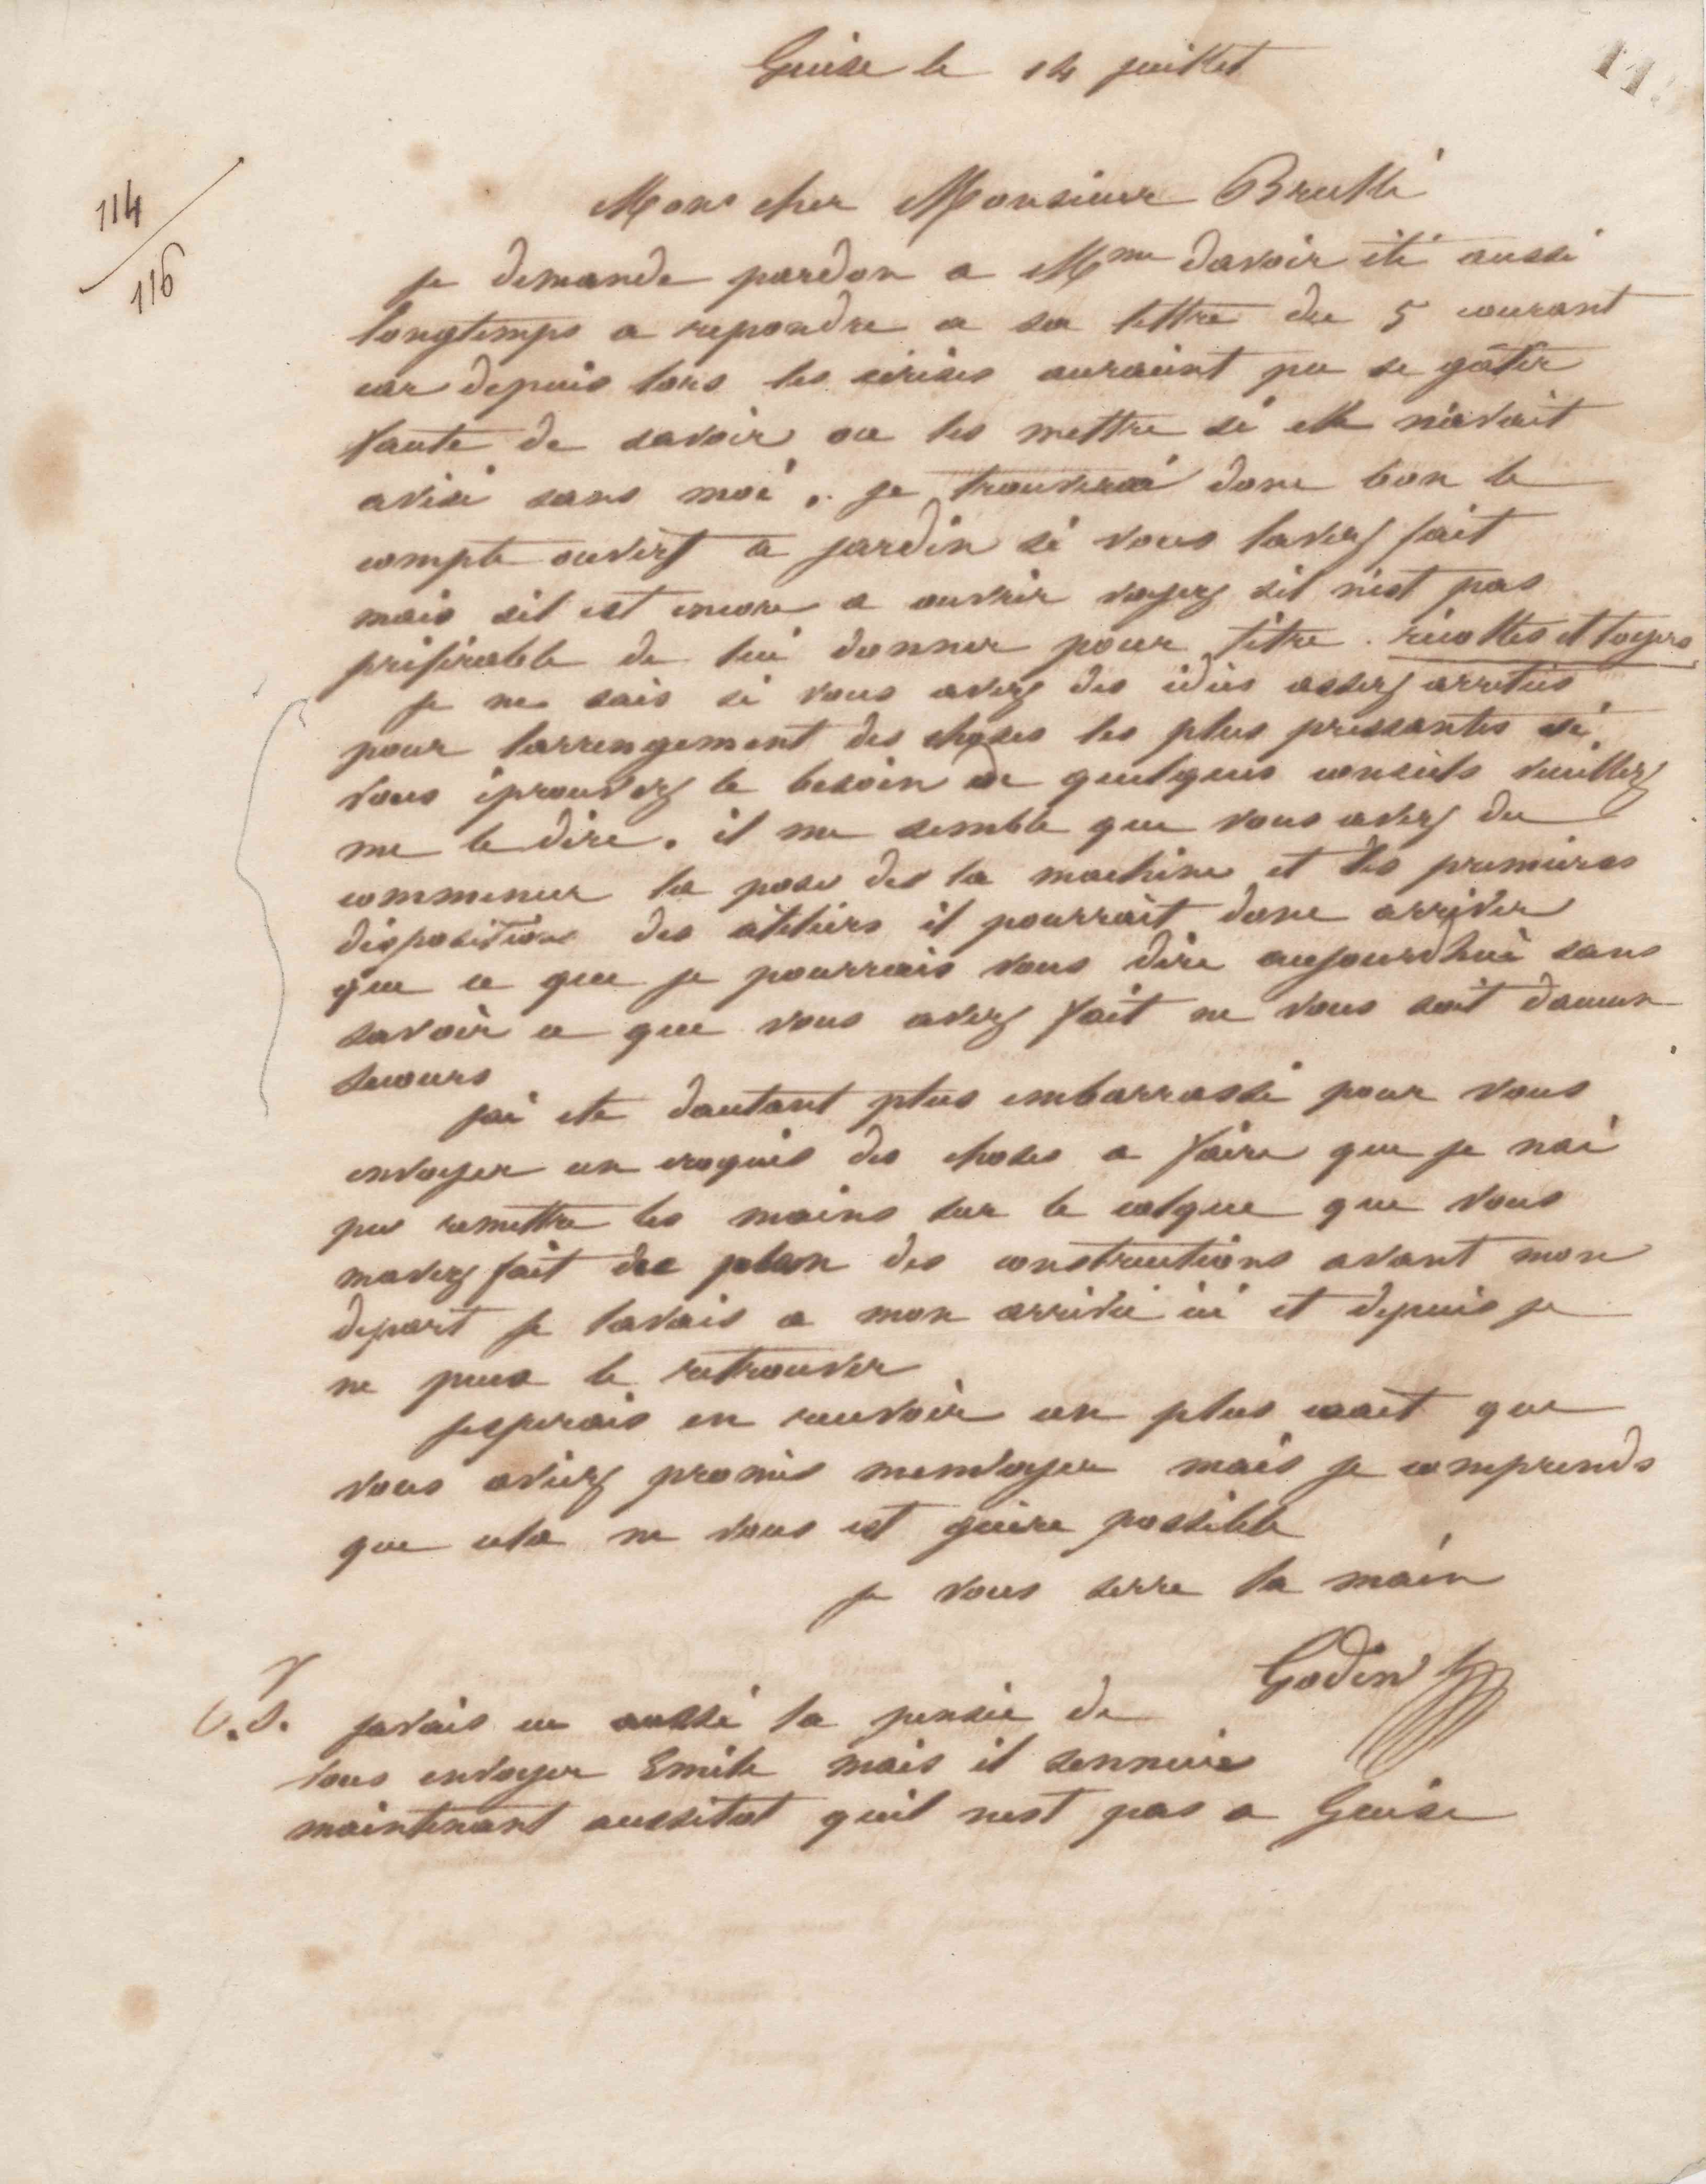 Guise le 14 juillet
11
114
116
Mon cher Monsieur Brullé
je demande pardon a Mme davoir été aussi
longtemps a repondre a sa lettre du 5 courant
car depuis lors les cerises auraient pu se gâter
faute de savoir ou les mettre si elle n'avait
avisé sans moi. je trouverai donc bon le
compte ouvert a jardin si vous lavez fait
mais sil est encore a ouvrir voyez sil n'est pas
préférable de lui donner pour titre. récoltes et loyers
je ne sais si vous avez des idées assez arretées
pour larrengement des choses les plus pressantes si
vous éprouvez le besoin de quelques conseils veuillez
me le dire. il me semble que vous avez du
commencer la pose de la machine et les premières
dispositions des atéliers il pourrait donc arriver
que ce que je pourrais vous dire aujourdhui sans
savoir ce que vous avez fait ne vous soit daucun
secours
jai ete dautant plus embarrassé pour vous
envoyer un croquis des choses a faire que je nai
pu remettre les mains sur le calque que vous
mavez fait du plan des constructions avant mon
depart je lavais a mon arrivée ici et depuis je
ne peux le retrouver
jesperais en recevoir un plus exact que
vous aviez promis menvoyer mais je comprends
que cela ne vous est guère possible
je vous serre la main
Godin
P.S. javais eu aussi la pensée de
vous envoyer Emile mais il sennuie
maintenant aussitot quil nest pas a Guise